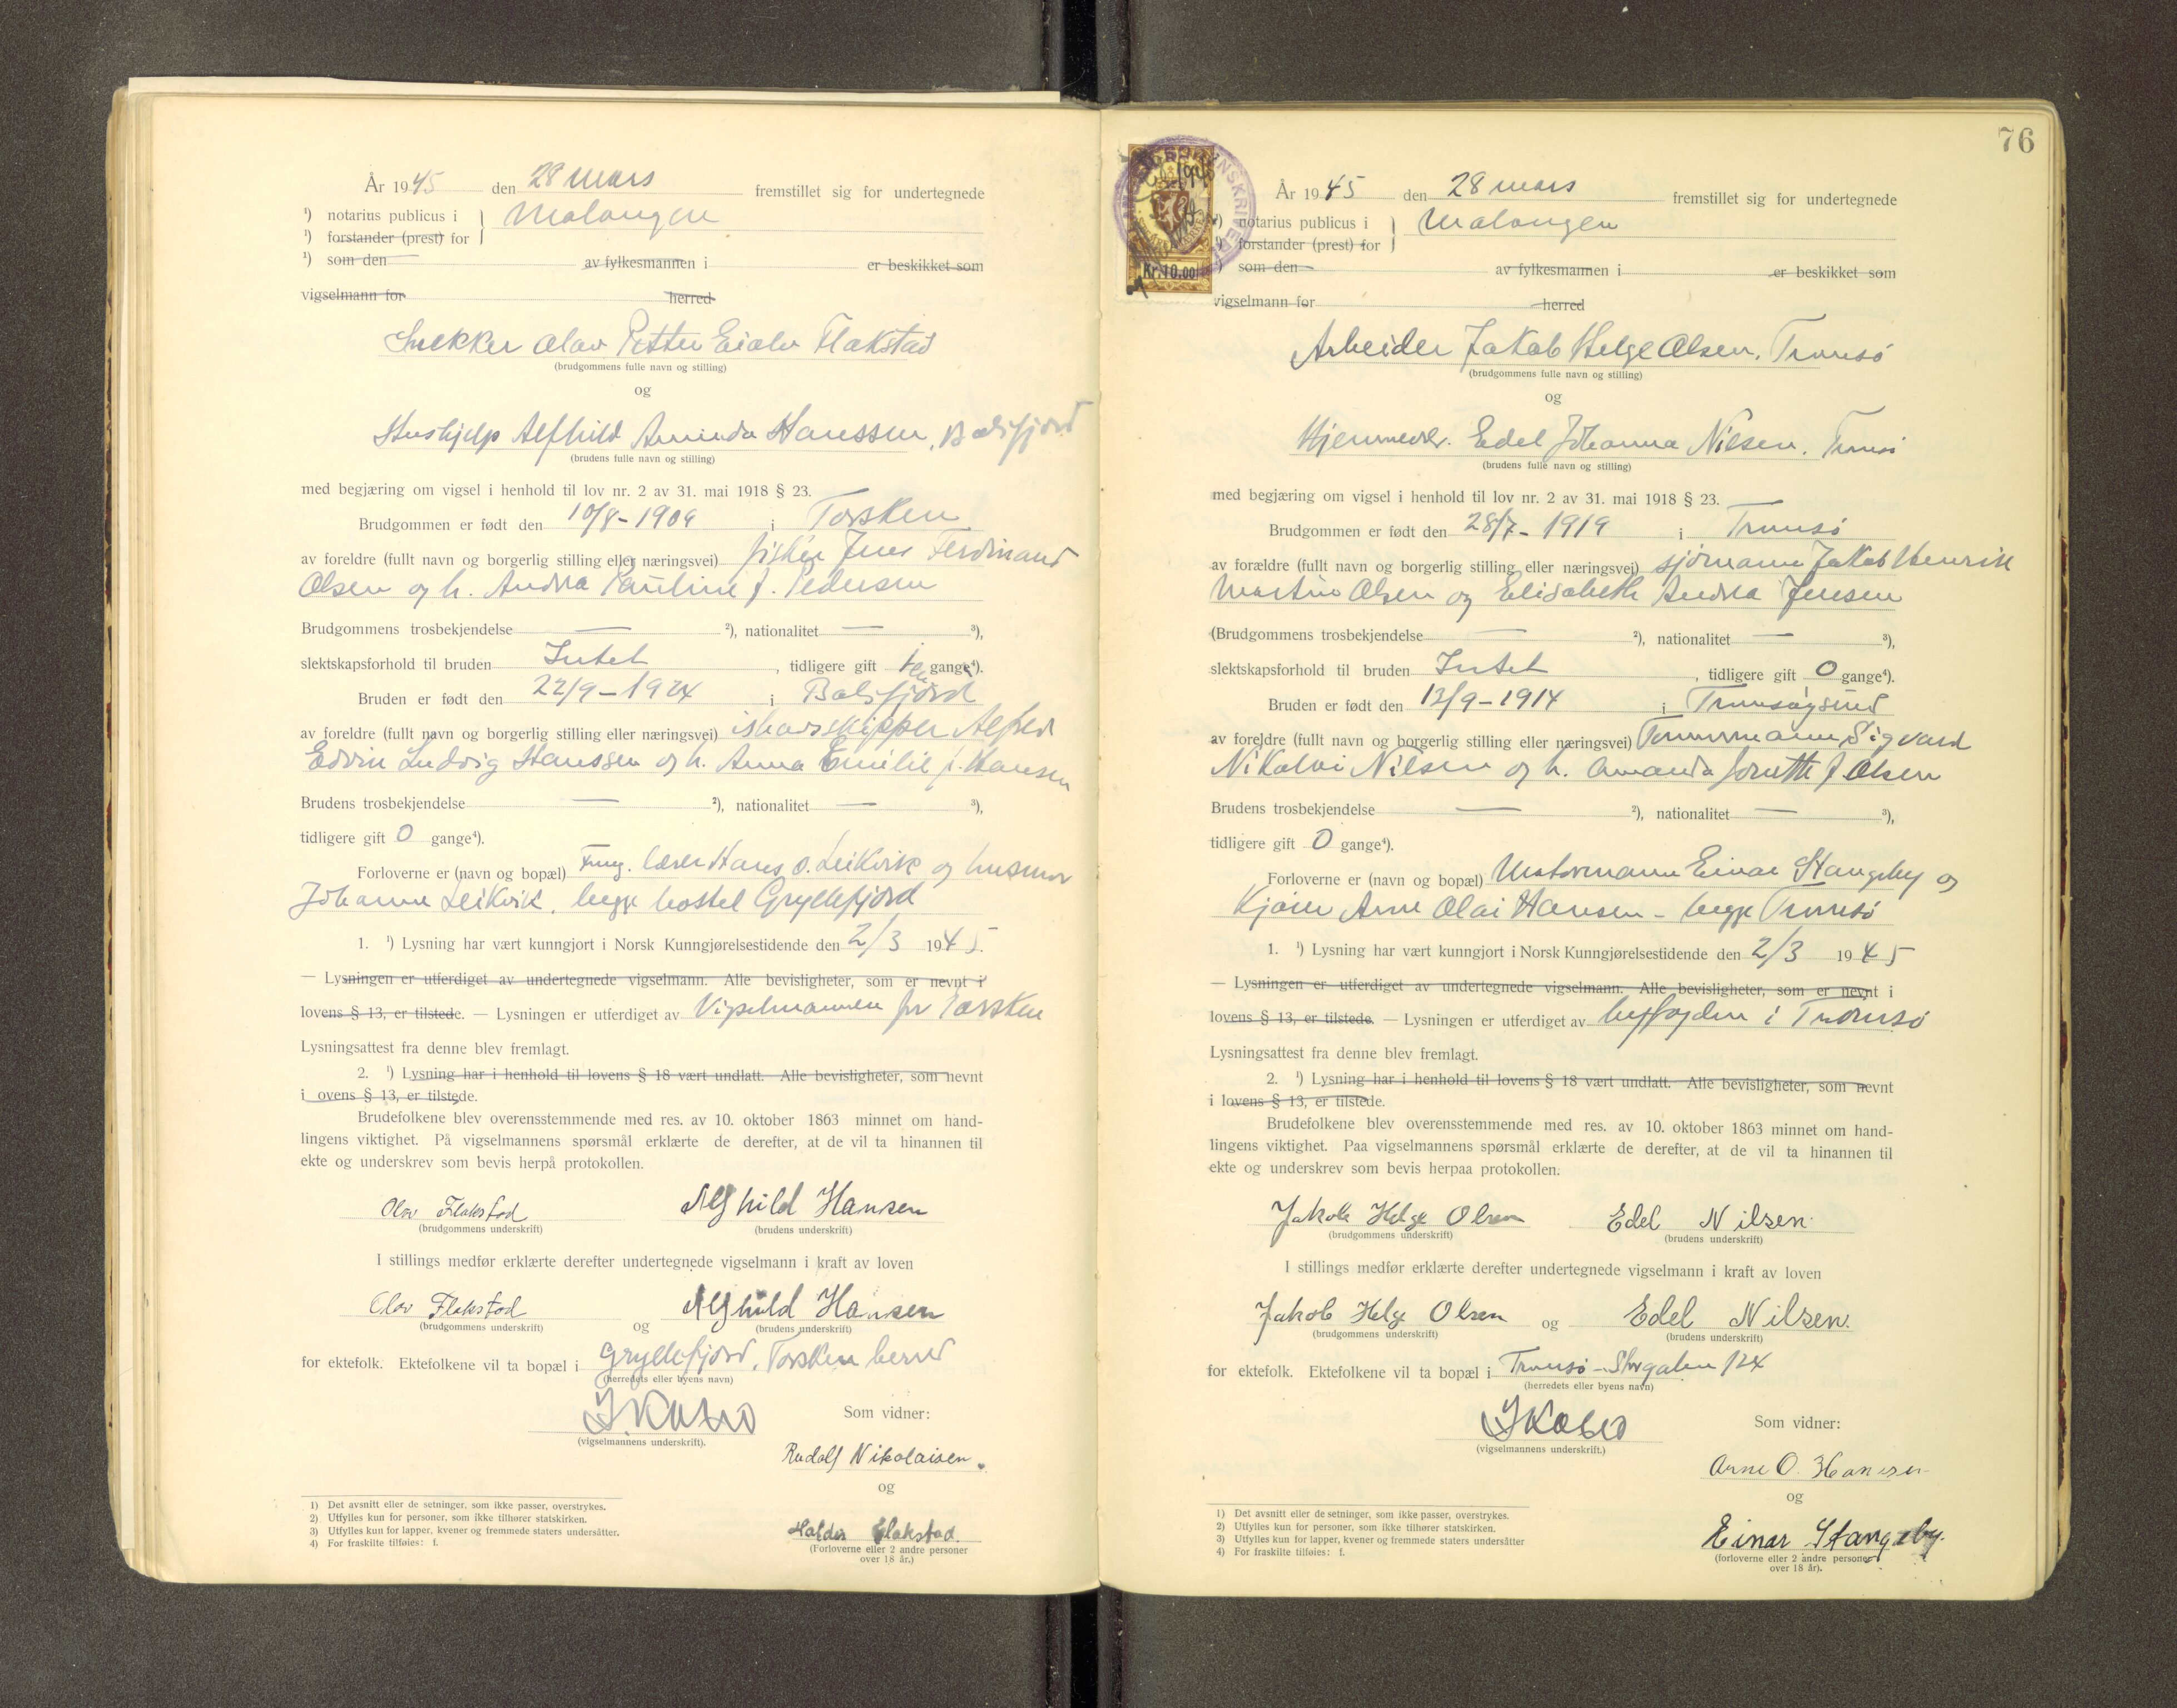 År 1945 den 28 mars fremstillet sig for undertegnede
¹) notarius publicus i } Malangen
¹) forstander (prest) for
¹) som den av fylkesmannen i er beskikket som
vigselmann for herred
Snekker Olav Petter Eialv Flakstad
(brudgommens fulle navn og stilling)
og
Hushjelp Alfhild Aminda Hanssen, Balsfjord
(brudens fulle navn og stilling)
med begjæring om vigsel i henhold til lov nr. 2 av 31. mai 1918 § 23.
Brudgommen er født den 10/8-1909 i Torsken
av foreldre (fullt navn og borgerlig stilling eller næringsvei) fisker Jens Ferdinand
Olsen og h. Andrea Pauline f. Pedersen
Brudgommens trosbekjendelse — ²), nationalitet — ³),
slektskapsforhold til bruden Intet, tidligere gift gange⁴).
Bruden er født den 22/9-1924 i Balsfjord
av foreldre (fullt navn og borgerlig stilling eller næringsvei) ishavsskipper Alfred
Edvin Ludvig Hanssen og h. Anna Emilie f. Hansen
Brudens trosbekjendelse — ²), nationalitet — ³),
tidligere gift 0 gange⁴).
Forloverne er (navn og bopæl) Fung. lærer Hans O. Leikvik og husmor
Johanne Leikvik, begge bostel Gryllefjord
1. ¹) Lysning har vært kunngjort i Norsk Kunngjørelsestidende den 2/3 1945.
— Lysningen er utferdiget av undertegnede vigselmann. Alle bevisligheter, som er nevnt i
lovens § 13, er tilstede. — Lysningen er utferdiget av Vigselmannen for Torsken
Lysningsattest fra denne blev fremlagt.
2. ¹) Lysning har i henhold til lovens § 18 vært undlatt. Alle bevisligheter, som nevnt
i ovens § 13, er tilstede.
Brudefolkene blev overensstemmende med res. av 10. oktober 1863 minnet om hand-
lingens viktighet. På vigselmannens spørsmål erklærte de derefter, at de vil ta hinannen til
ekte og underskrev som bevis herpå protokollen.
Olav Flakstad Alfhild Hansen
(brudgommens underskrift) (brudens underskrift)
I stillings medfør erklærte derefter undertegnede vigselmann i kraft av loven
Olav Flakstad og Alfhild Hansen
(brudgommens underskrift) (brudens underskrift)
for ektefolk. Ektefolkene vil ta bopæl i Gryllefjord, Torsken herred
(herredets eller byens navn)
Som vidner:
(vigselmannens underskrift).
Rudolf Nikolaisen.
og
Haldor Flakstad.
(Forloverne eller 2 andre personer
over 18 år.)
1) Det avsnitt eller de setninger, som ikke passer, overstrykes.
2) Utfylles kun for personer, som ikke tilhører statskirken.
3) Utfylles kun for lapper, kvener og fremmede staters undersåtter.
4) For fraskilte tilføies: f.
76
Kr. 10.00
År 1945 den 28 mars fremstillet sig for undertegnede
notarius publicus i } Malangen
forstander (prest) for
som den av fylkesmannen i er beskikket som
vigselmann for herred
Arbeider Jakob Helge Olsen, Tromsø
(brudgommens fulle navn og stilling)
og
Hjemmevær. Edel Johanna Nilsen, Tromsø
(brudens fulle navn og stilling)
med begjæring om vigsel i henhold til lov nr. 2 av 31. mai 1918 § 23.
Brudgommen er født den 28/7-1919 i Tromsø
av forældre (fullt navn og borgerlig stilling eller næringsvei) sjømann Jakob Henrik
Martin Olsen og Elisabeth Andrea Jensen
(Brudgommens trosbekjendelse — ²), nationalitet — ³),
slektskapsforhold til bruden Intet, tidligere gift 0 gange⁴).
Bruden er født den 13/9-1914 i Tromsøysund
av foreldre (fullt navn og borgerlig stilling eller næringsvei) Tømmermann Sigvard
Nikolai Nilsen og h. Amanda Jorette f. Olsen
Brudens trosbekjendelse — ²), nationalitet — ³),
tidligere gift 0 gange⁴).
Forloverne er (navn og bopæl) Motormann Einar Stangeby og
Kjører Arne Olai Hansen - begge Tromsø
1. ¹) Lysning har vært kunngjort i Norsk Kunngjørelsestidende den 2/3 1945
— Lysningen er utferdiget av undertegnede vigselmann. Alle bevisligheter, som er nevnt i
lovens § 13, er tilstede. — Lysningen er utferdiget av byfogden i Tromsø
Lysningsattest fra denne blev fremlagt.
2. ¹) Lysning har i henhold til lovens § 18 vært undlatt. Alle bevisligheter, som nevnt
i lovens § 13, er tilstede.
Brudefolkene blev overensstemmende med res. av 10. oktober 1863 minnet om hand-
lingens viktighet. Paa vigselmannens spørsmål erklærte de derefter, at de vil ta hinannen til
ekte og underskrev som bevis herpaa protokollen.
Jakob Helge Olsen Edel Nilsen.
(brudgommens underskrift) (brudens underskrift)
I stillings medfør erklærte derefter undertegnede vigselmann i kraft av loven
Jakob Helge Olsen og Edel Nilsen.
(brudgommens underskrift) (brudens underskrift)
for ektefolk. Ektefolkene vil ta bopæl i Tromsø - Storgaten 124
(herredets eller byens navn)
Som vidner:
(vigselmannens underskrift.)
Arne O. Hansen
og
Einar Stangeby.
(forloverne eller 2 andre personer
over 18 år).
1) Det avsnitt eller de setninger, som ikke passer, overstrykes.
2) Utfylles kun for personer, som ikke tilhører statskirken.
3) Utfylles kun for lapper, kvener og fremmede staters undersåtter
4) For fraskilte tilføies: f.